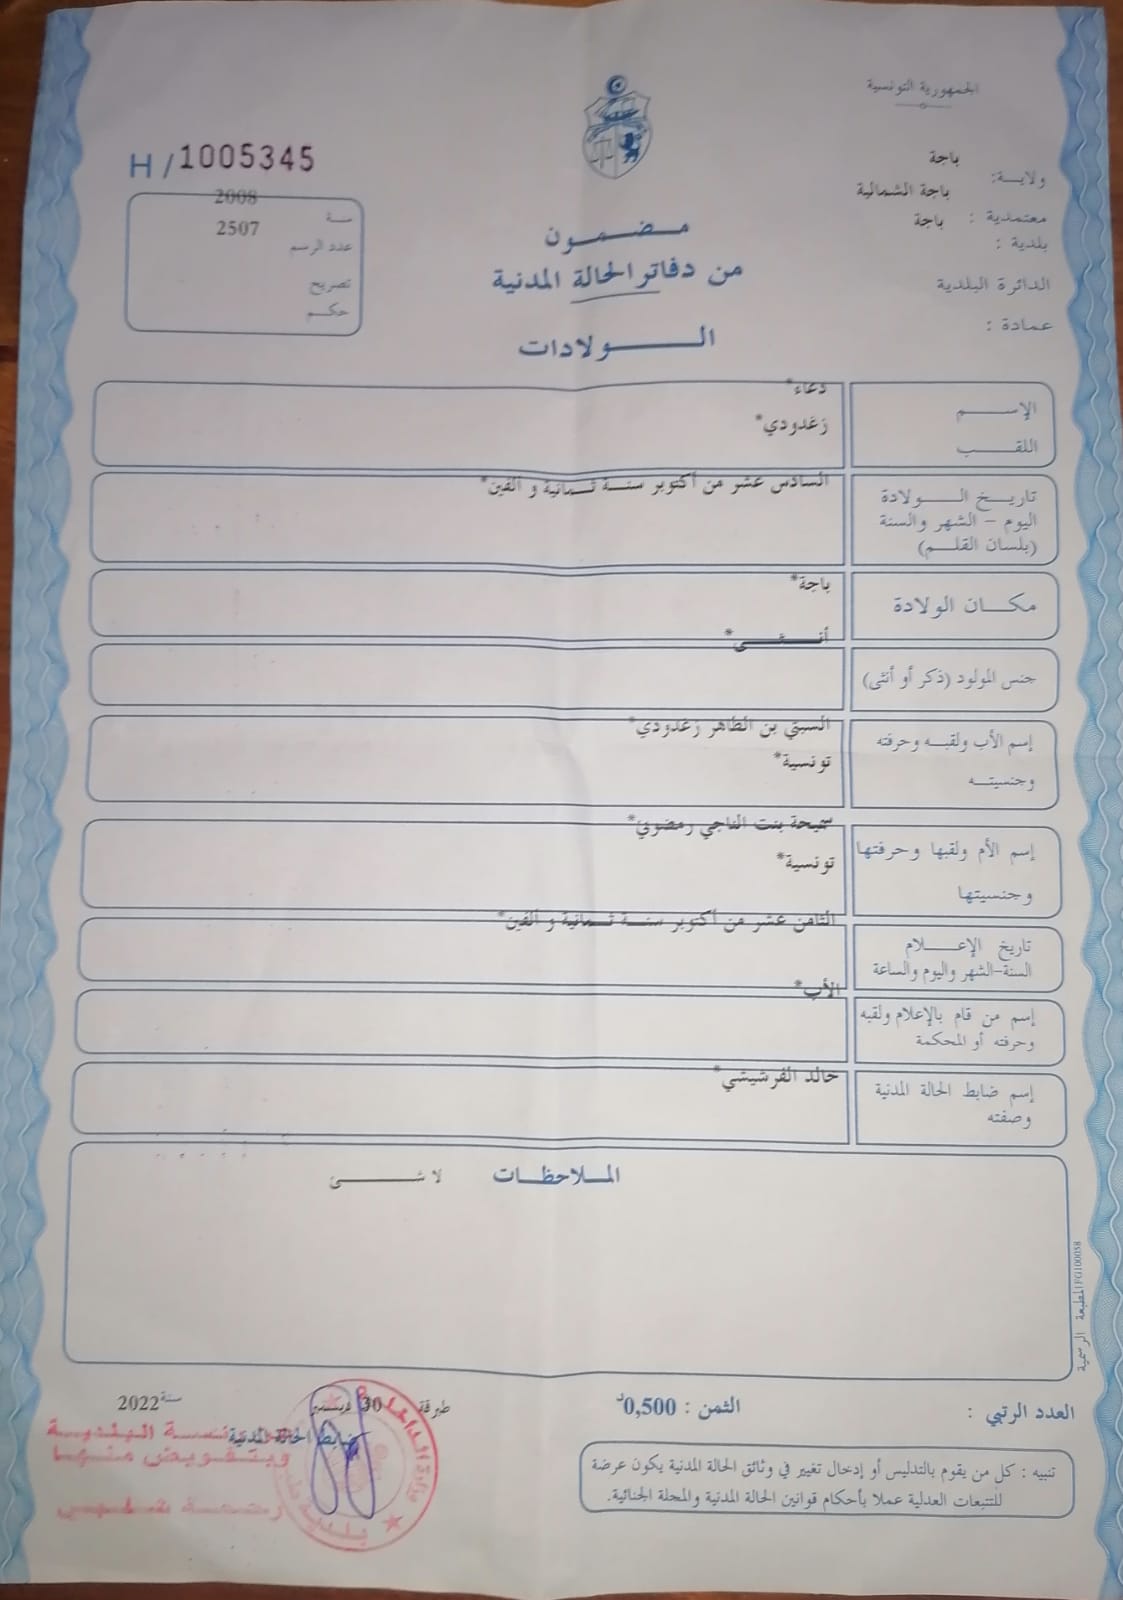 الجمهورية التونسية
H / 1005345
ولايـــة: باجة
معتمدية : باجة الشمالية
بلدية : باجة
الدائرة البلدية
عمادة :
سنة 2008
عدد الرسم 2507
تصريح
حكـــم
مـــضـــمـــون
من دفاتر الحالة المدنية
الـــــــولادات
الإســــــم دعاء*
اللقـــــب زغدودي*
تاريـــخ الـــــولادة السادس عشر من أكتوبر سنـــة ثـــمانية و ألفين*
اليوم – الشهر والسنة
(بلسان القلـــم)
مكـــان الولادة باجة*
جنس المولود (ذكر أو أنثى) أنــــثــــى*
إسم الأب ولقبـــه وحرفته السبتي بن الطاهر زغدودي*
وجنسيتـــه تونسية*
إسم الأم ولقبها وحرفتها سميحة بنت الناجي رمضوني*
وجنسيتها تونسية*
تاريخ الإعــــلام الثامن عشر من أكتوبر سنـــة ثـــمانية و ألفين*
السنة-الشهر واليوم والساعة
إسم من قام بالإعلام ولقبه الأب*
وحرفته أو المحكمة
إسم ضابط الحالة المدنية خالد الفرشيشي*
وصفته
المـــلاحظـــات لا شــــــئ
المطبعة الرسمية FG100058
العدد الرتبي :
الثمن : 0,500د
طبرقة 30 ديسمبر سنة 2022
ضابط الحالة المدنية
وبتفويض منها
تنبيه : كل من يقوم بالتدليس أو إدخال تغيير في وثائق الحالة المدنية يكون عرضة
للتتبعات العدلية عملا بأحكام قوانين الحالة المدنية والمجلة الجنائية.